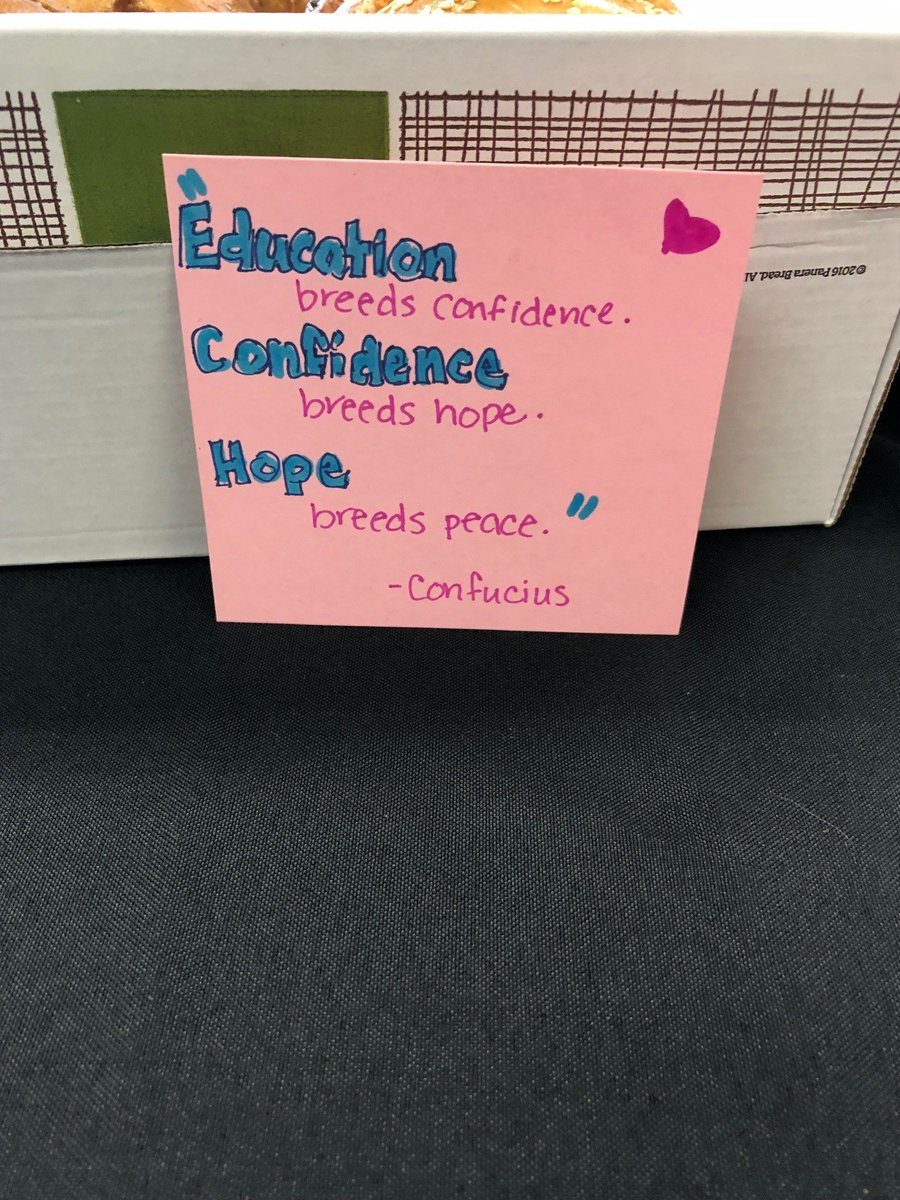 "Education
breeds confidence.
Confidence
breeds hope.
Hope
breeds peace."
-Confucius
©2016 Panera Bread. Al